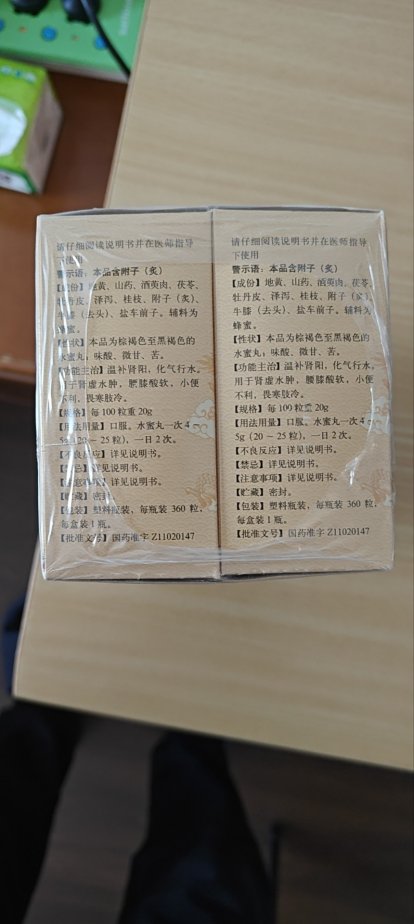 请仔细阅读说明书并在医师指导
下使用
警示语：本品含附子（炙）
【成份】地黄、山药、酒萸肉、茯苓、
牡丹皮、泽泻、桂枝、附子（炙）、
牛膝（去头）、盐车前子。辅料为
蜂蜜。
【性状】本品为棕褐色至黑褐色的
水蜜丸；味酸、微甘、苦。
【功能主治】温补肾阳，化气行水。
用于肾虚水肿，腰膝酸软，小便
不利，畏寒肢冷。
【规格】每100粒重20g
【用法用量】口服。水蜜丸一次4～
5g（20～25粒），一日2次。
【不良反应】详见说明书。
【禁忌】详见说明书。
【注意事项】详见说明书。
【贮藏】密封。
【包装】塑料瓶装，每瓶装360粒，
每盒装1瓶。
【批准文号】国药准字Z11020147
请仔细阅读说明书并在医师指导
下使用
警示语：本品含附子（炙）
【成份】地黄、山药、酒萸肉、茯苓、
牡丹皮、泽泻、桂枝、附子（炙）、
牛膝（去头）、盐车前子。辅料为
蜂蜜。
【性状】本品为棕褐色至黑褐色的
水蜜丸；味酸、微甘、苦。
【功能主治】温补肾阳，化气行水。
用于肾虚水肿，腰膝酸软，小便
不利，畏寒肢冷。
【规格】每100粒重20g
【用法用量】口服。水蜜丸一次4～
5g（20～25粒），一日2次。
【不良反应】详见说明书。
【禁忌】详见说明书。
【注意事项】详见说明书。
【贮藏】密封。
【包装】塑料瓶装，每瓶装360粒，
每盒装1瓶。
【批准文号】国药准字Z11020147